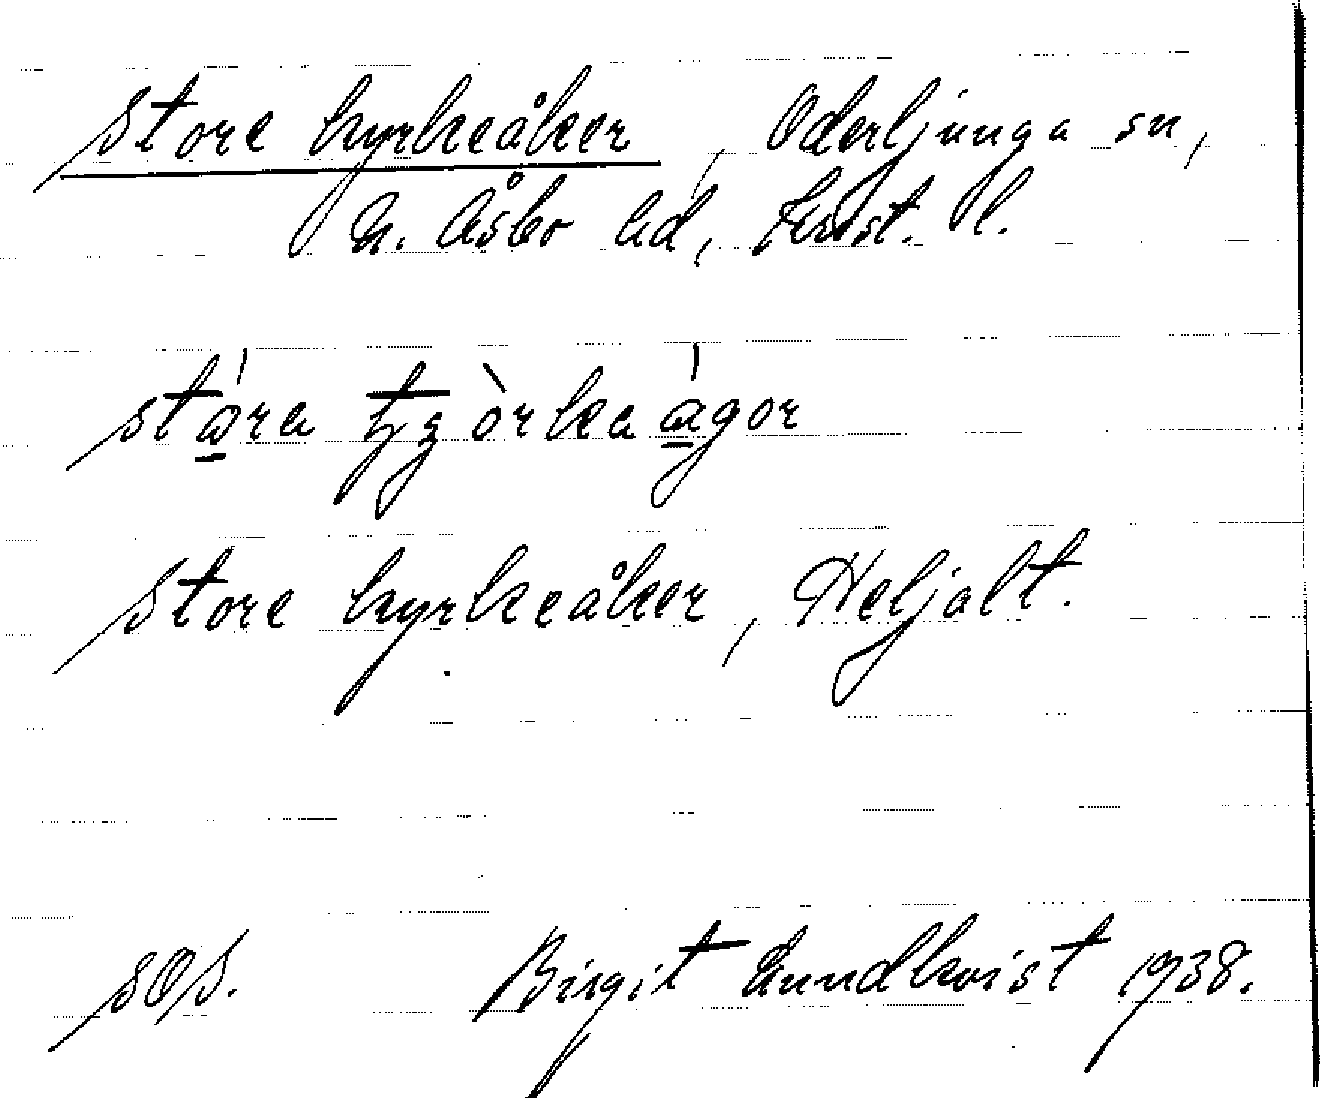 Store kyrkeåker, Oderljunga sn,
N. Åsbo hd, Krist. l.
stǻra tʒòrkaàgor
Store kyrkeåker, Heljalt.
SOS. Birgit Lundkvist 1938.